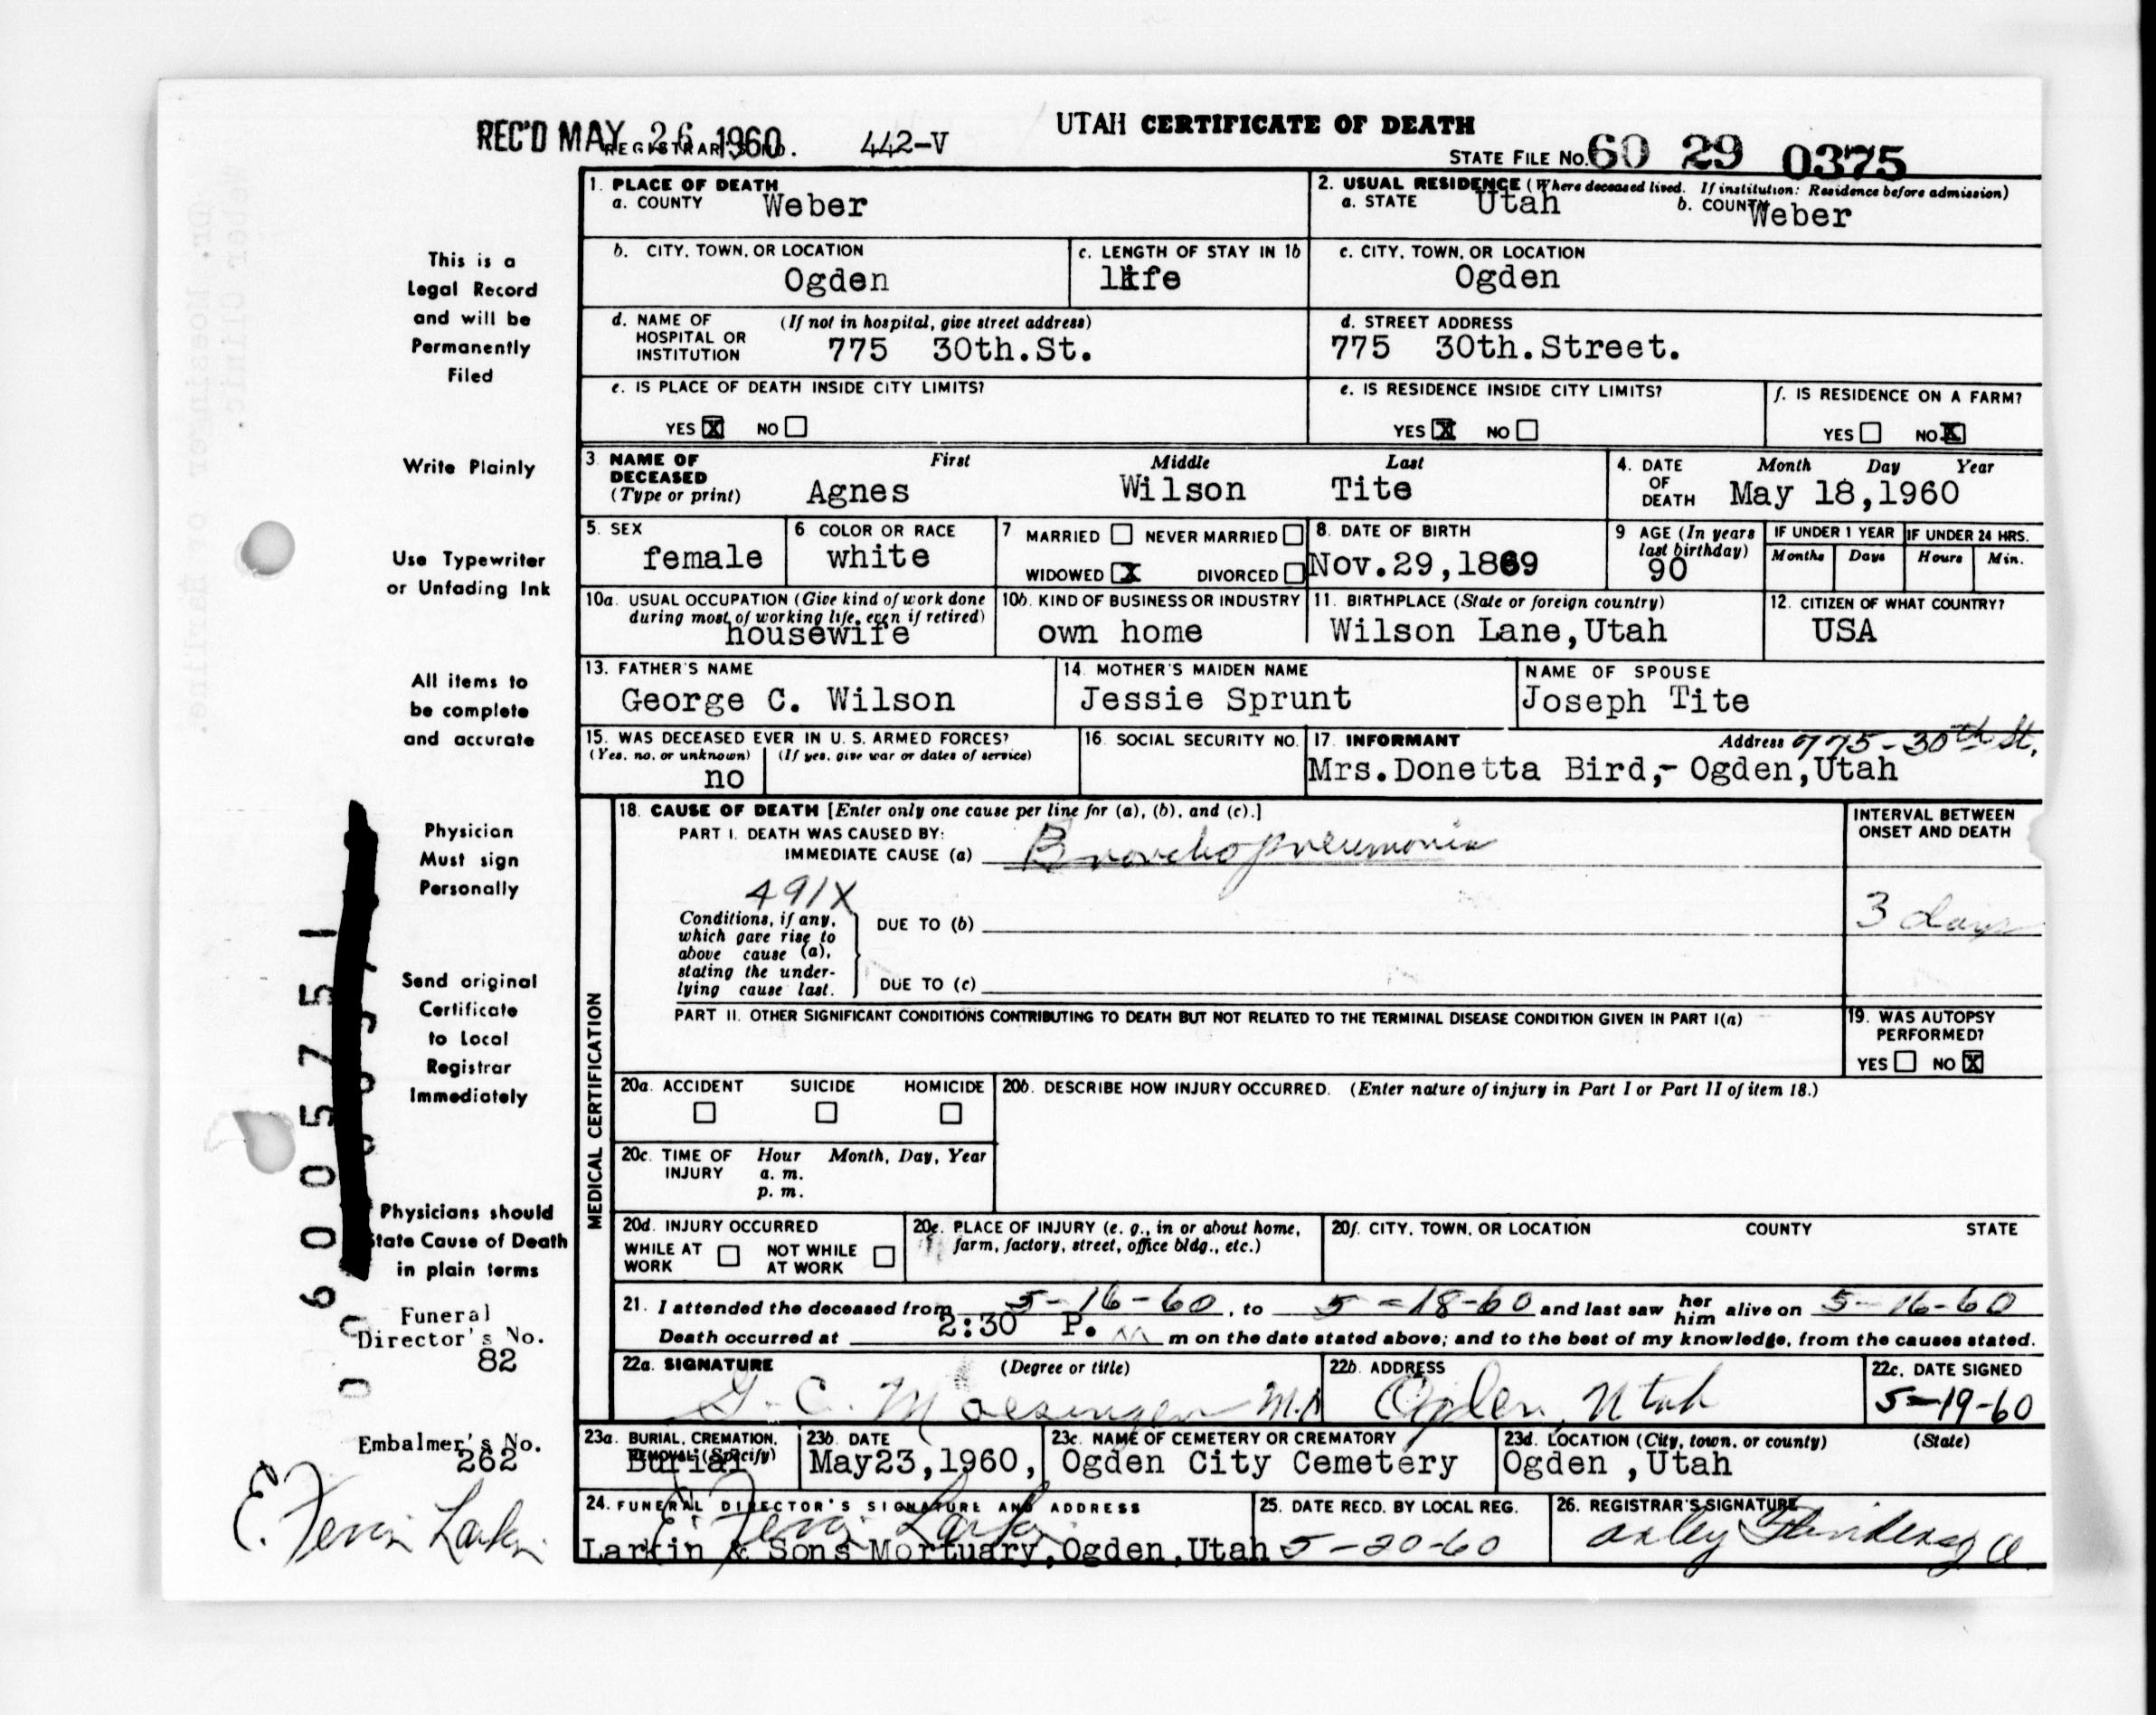 UTAH CERTIFICATE OF DEATH
REC'D MAY 26 1960
REGISTRAR'S NO. 442-V
STATE FILE NO. 60 29 0375
1. PLACE OF DEATH
a. COUNTY Weber
2. USUAL RESIDENCE (Where deceased lived. If institution: Residence before admission)
a. STATE Utah b. COUNTY Weber
b. CITY, TOWN, OR LOCATION
Ogden
c. LENGTH OF STAY IN 1b
life
c. CITY, TOWN, OR LOCATION
Ogden
d. NAME OF HOSPITAL OR INSTITUTION (If not in hospital, give street address)
775 30th.St.
d. STREET ADDRESS
775 30th.Street.
e. IS PLACE OF DEATH INSIDE CITY LIMITS?
YES X NO
e. IS RESIDENCE INSIDE CITY LIMITS?
YES X NO
f. IS RESIDENCE ON A FARM?
YES NO X
3. NAME OF DECEASED (Type or print)
First Middle Last
Agnes Wilson Tite
4. DATE OF DEATH Month Day Year
May 18,1960
5. SEX
female
6 COLOR OR RACE
white
7 MARRIED NEVER MARRIED
WIDOWED X DIVORCED
8. DATE OF BIRTH
Nov.29,1869
9 AGE (In years last birthday)
90
IF UNDER 1 YEAR
Months Days
IF UNDER 24 HRS.
Hours Min.
10a. USUAL OCCUPATION (Give kind of work done during most of working life, even if retired)
housewife
10b. KIND OF BUSINESS OR INDUSTRY
own home
11. BIRTHPLACE (State or foreign country)
Wilson Lane,Utah
12. CITIZEN OF WHAT COUNTRY?
USA
13. FATHER'S NAME
George C. Wilson
14. MOTHER'S MAIDEN NAME
Jessie Sprunt
NAME OF SPOUSE
Joseph Tite
15. WAS DECEASED EVER IN U. S. ARMED FORCES?
(Yes, no, or unknown) (If yes, give war or dates of service)
no
16. SOCIAL SECURITY NO.
17. INFORMANT Address 775-30th St,
Mrs.Donetta Bird,- Ogden,Utah
MEDICAL CERTIFICATION
18. CAUSE OF DEATH [Enter only one cause per line for (a), (b), and (c).]
PART I. DEATH WAS CAUSED BY:
IMMEDIATE CAUSE (a) Bronchopneumonia
INTERVAL BETWEEN ONSET AND DEATH
3 days
491X
Conditions, if any, which gave rise to above cause (a), stating the underlying cause last.
DUE TO (b)
DUE TO (c)
PART II. OTHER SIGNIFICANT CONDITIONS CONTRIBUTING TO DEATH BUT NOT RELATED TO THE TERMINAL DISEASE CONDITION GIVEN IN PART I(a)
19. WAS AUTOPSY PERFORMED?
YES NO X
20a. ACCIDENT SUICIDE HOMICIDE
20b. DESCRIBE HOW INJURY OCCURRED. (Enter nature of injury in Part I or Part II of item 18.)
20c. TIME OF INJURY Hour Month, Day, Year
a. m.
p. m.
20d. INJURY OCCURRED
WHILE AT WORK NOT WHILE AT WORK
20e. PLACE OF INJURY (e. g., in or about home, farm, factory, street, office bldg., etc.)
20f. CITY, TOWN, OR LOCATION COUNTY STATE
21. I attended the deceased from 5-16-60, to 5-18-60 and last saw her him alive on 5-16-60
Death occurred at 2:30 P. m on the date stated above; and to the best of my knowledge, from the causes stated.
22a. SIGNATURE (Degree or title)
G. C. Moesinger M.D
22b. ADDRESS
Ogden, Utah
22c. DATE SIGNED
5-19-60
23a. BURIAL, CREMATION, REMOVAL (Specify)
Burial
23b. DATE
May23,1960,
23c. NAME OF CEMETERY OR CREMATORY
Ogden City Cemetery
23d. LOCATION (City, town, or county) (State)
Ogden ,Utah
24. FUNERAL DIRECTOR'S SIGNATURE AND ADDRESS
Larkin & Sons Mortuary,Ogden,Utah
25. DATE RECD. BY LOCAL REG.
5-20-60
26. REGISTRAR'S SIGNATURE
This is a
Legal Record
and will be
Permanently
Filed
Write Plainly
Use Typewriter
or Unfading Ink
All items to
be complete
and accurate
Physician
Must sign
Personally
Send original
Certificate
to Local
Registrar
Immediately
Physicians should
State Cause of Death
in plain terms
Funeral
Director's No.
82
Embalmer's No.
262
Larkin
6005751